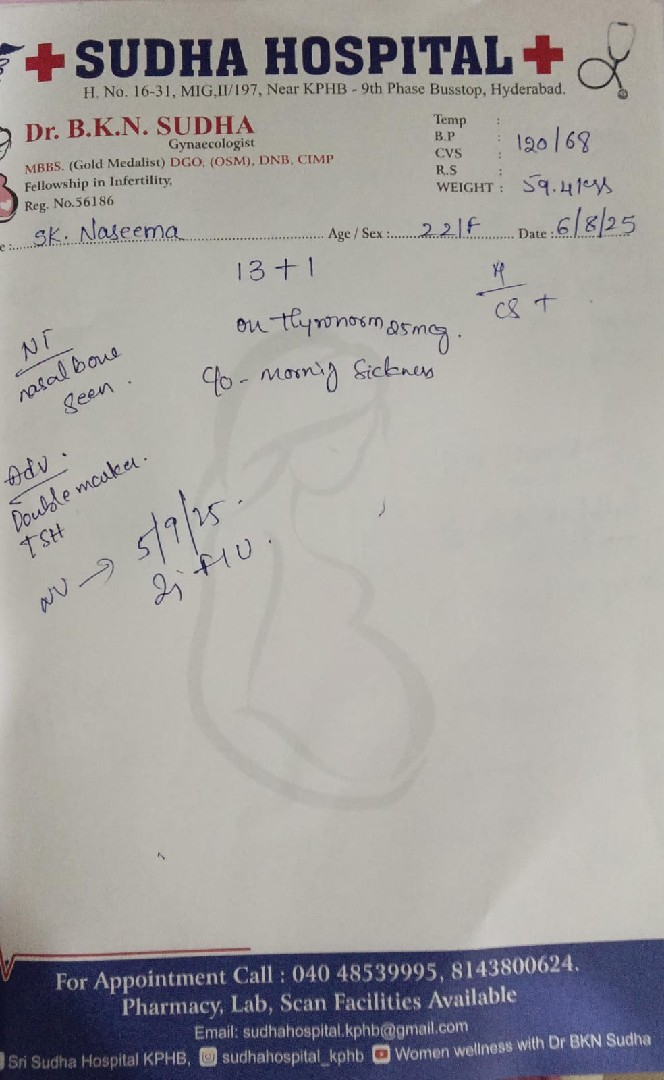 SUDHA HOSPITAL
H. No. 16-31, MIG,II/197, Near KPHB - 9th Phase Busstop, Hyderabad.
Dr. B.K.N. SUDHA
Gynaecologist
MBBS. (Gold Medalist) DGO, (OSM), DNB, CIMP
Fellowship in Infertility,
Reg. No.56186
Temp :
B.P : 120/68
CVS :
R.S :
WEIGHT : 59.4
e: SK. Naseema Age / Sex : 22/F Date : 6/8/25
13 + 1
CS +
on thyronorm 25mcg.
NT
nasal bone
seen.
c/o - mornig Sickness
Adv.
Double marker.
TSH
NV → 5/9/25.
For Appointment Call : 040 48539995, 8143800624.
Pharmacy, Lab, Scan Facilities Available
Email: sudhahospital.kphb@gmail.com
Sri Sudha Hospital KPHB, sudhahospital_kphb Women wellness with Dr BKN Sudha